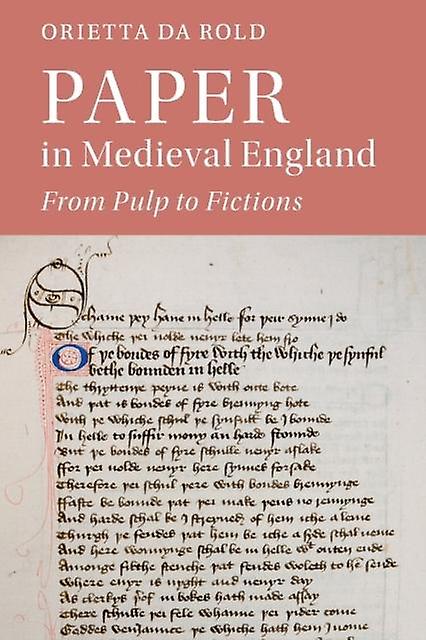 ORIETTA DA ROLD
PAPER
in Medieval England
From Pulp to Fictions
Schame þey haue in helle for þeir synne I do
The whiche þei nolde neuyr lete hem
Of þe bondes of fyre with the whiche þe synful
bethe bounden in helle
The peyne is with oute bote
And þat is bondes of fyre brennyng hote
With þe whiche schul þe synfulle be I bounde
In helle to suffir mony an harde stounde
But þe bondes of fyre schulle neuyr aslake
ffor þei nolde neuyr here synnes forsake
Therefore þei schul þere with bondes brennynge
ffaste be bounde þat þei make þens no rennynge
And harde schal be I streyned of hem iche a leme
Thurgh þe fendes þat hem be iche a syde schal neme
And here wonnynge schal be in helle wt outen ende
Amonge filthe stenche þat fendes woleth to hem sende
Where euyr is nyght and neuyr day
As clerkys in bokes hath made assay
There schulle þei fele whanne þei þider come
Goddes veniaunce þe whiche hath hem I nome